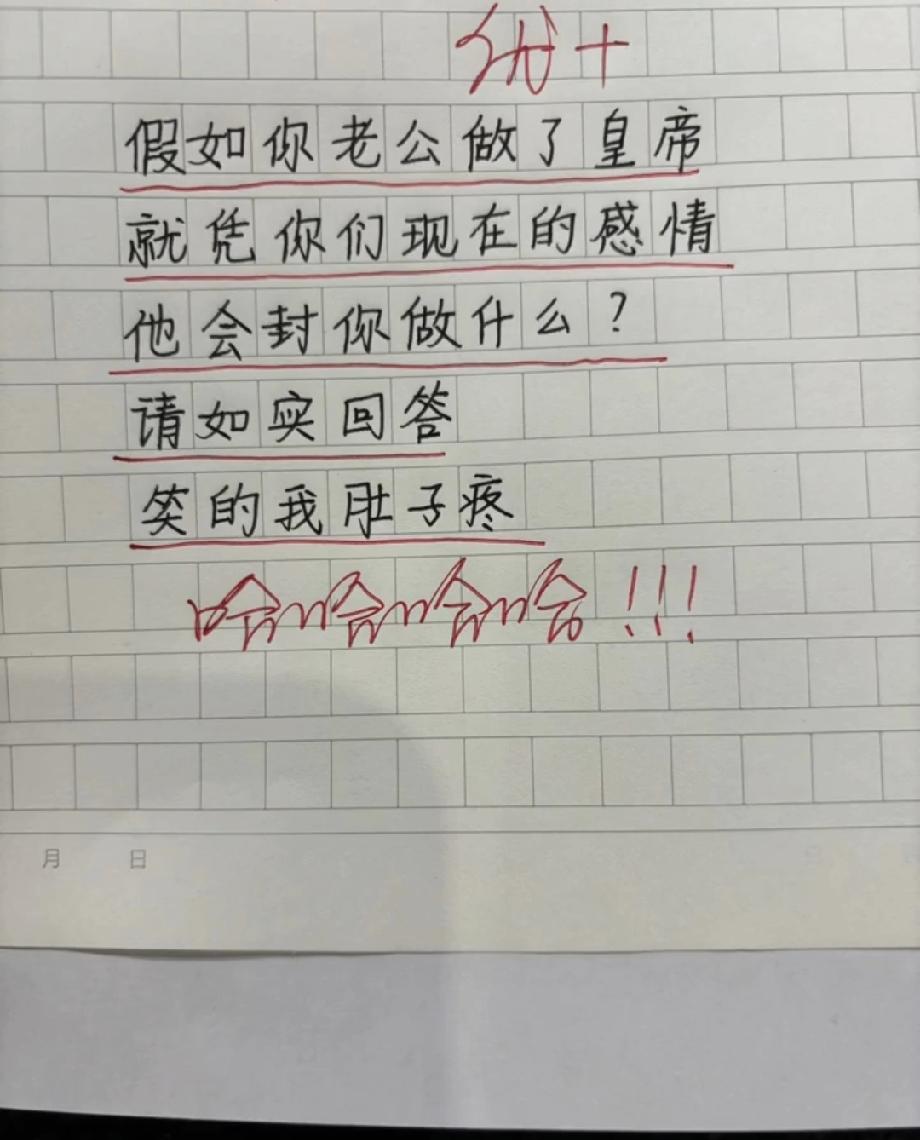 优+
假如你老公做了皇帝
就凭你们现在的感情
他会封你做什么?
请如实回答
笑的我肚子疼
哈哈哈哈!!!
月 日